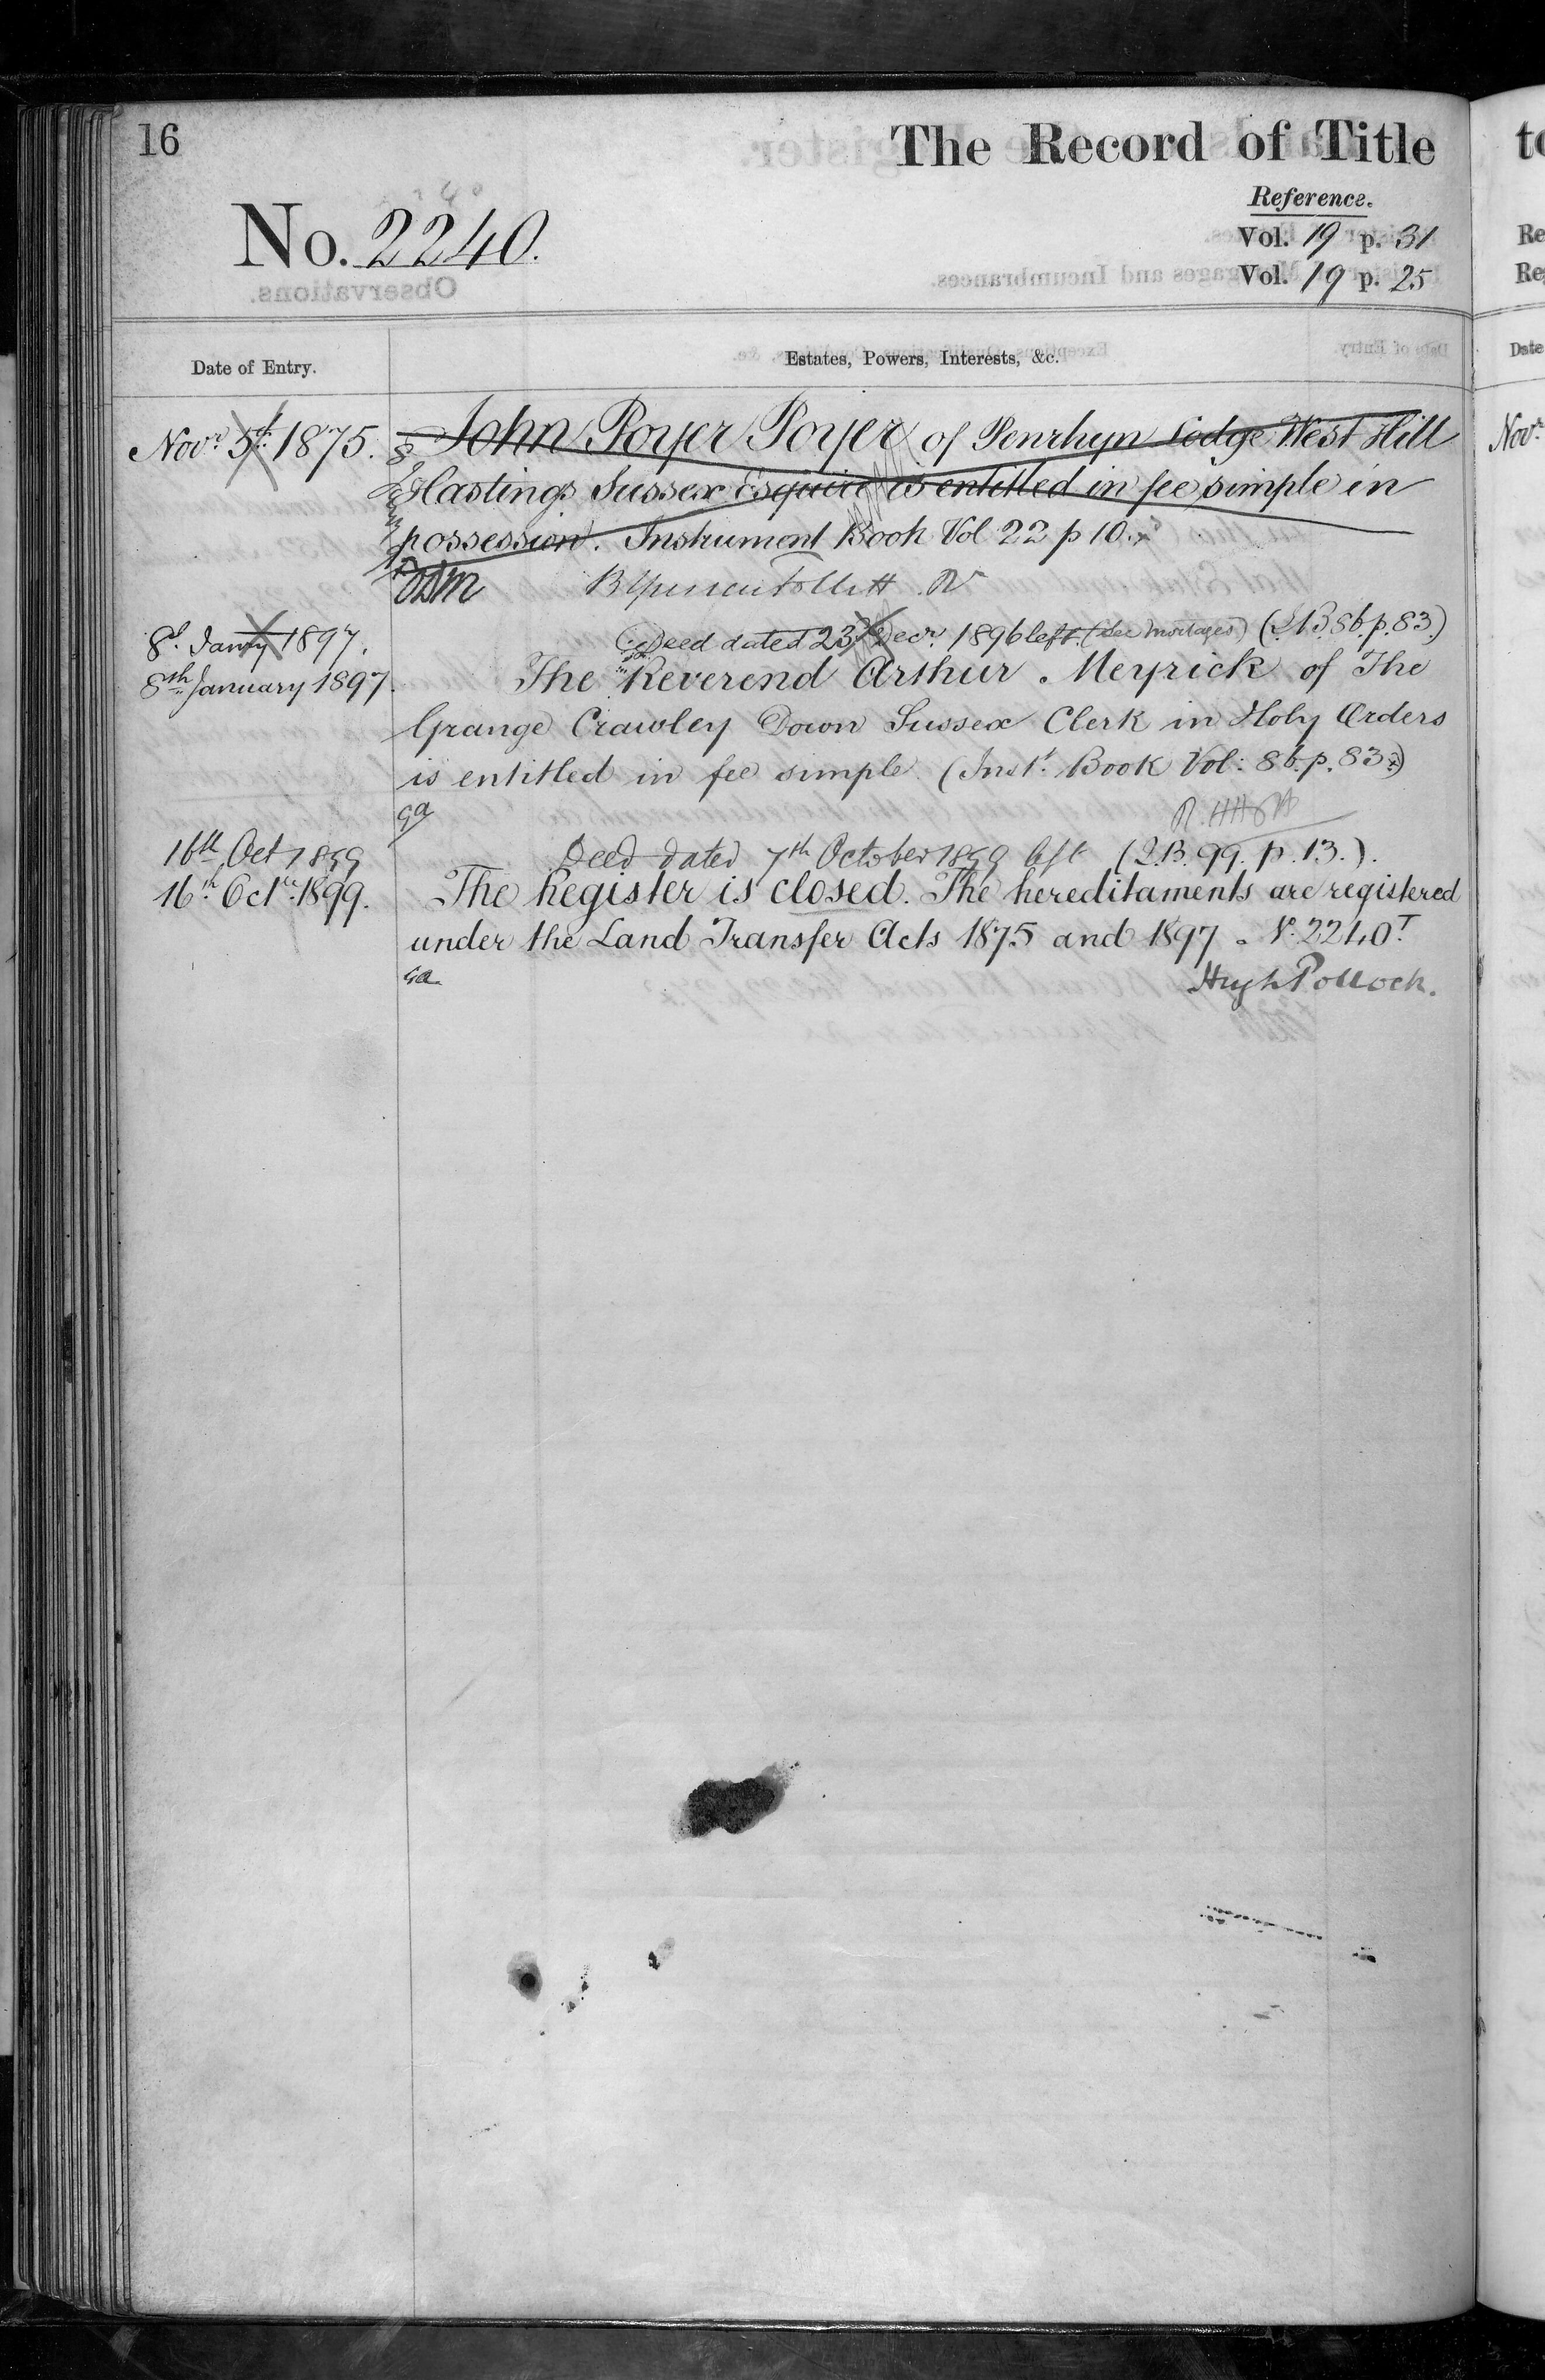 16
The Record of Title
Reference.
No. 2240.
Vol. 19 p. 31
Vol. 19 p. 25
Observations.
Date of Entry.
Estates, Powers, Interests, &c.
Novr. 5th 1875.
John Poyer Poyer of Penrhyn Lodge West Hill
Hastings Sussex Esquire is entitled in fee simple in
possession. Instrument Book Vol 22 p 10.
8th Jany 1897.
Deed dated 23rd Decr. 1896 left. (See Mortages) (I.B. 86. p. 83.)
8th January 1897.
The Reverend Arthur Meyrick of The
Grange Crawley Down Sussex Clerk in Holy Orders
is entitled in fee simple. (Inst. Book Vol: 86. p. 83.)
ga
16th Oct 1899
Deed dated 7th October 1899 left (I.B. 99. p. 13.).
16th Octr. 1899.
The Register is closed. The hereditaments are registered
under the Land Transfer Acts 1875 and 1897. No. 2240T.
ga
Hugh Pollock.
to
Re
Reg
Date
Novr.